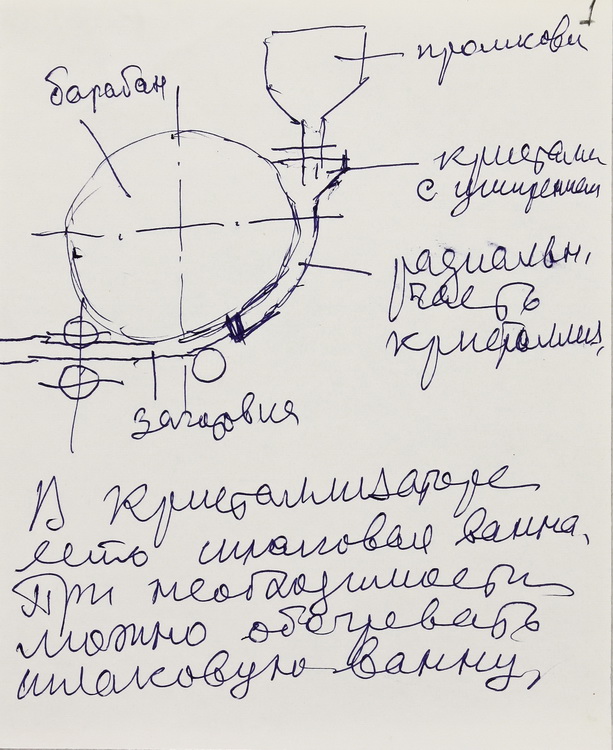 1
барабан
промкови
кристалл
с уширением
радиальн.
часть
кристаллиз.
заготовка
В кристаллизаторе
есть шлаковая ванна.
При необходимости
можно обогревать
шлаковую ванну,